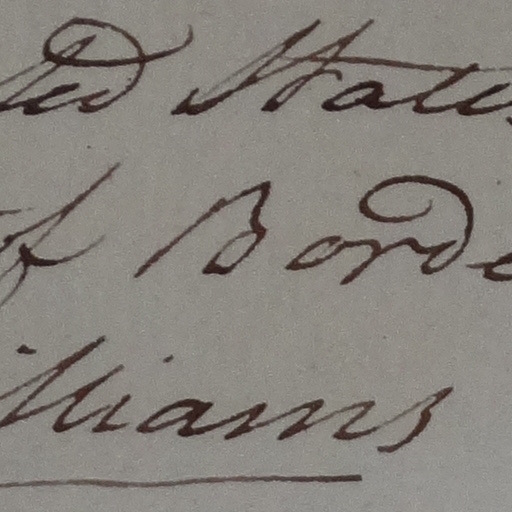 ted States
of Borde
illiams